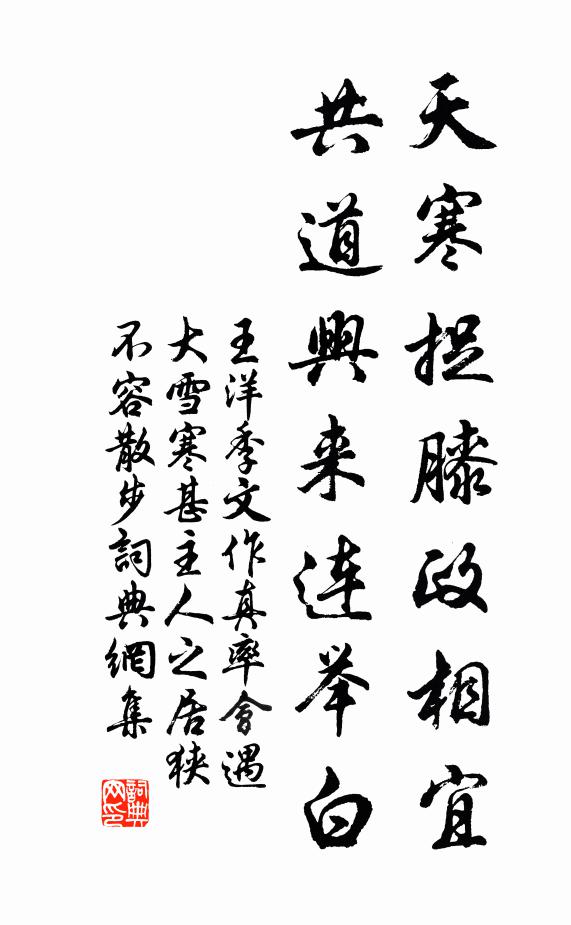 天寒捉膝政相宜
共道興来连举白
王洋季文作真率會遇
大雪寒甚主人之居狭
不容散步詞典網集
詞典
网印